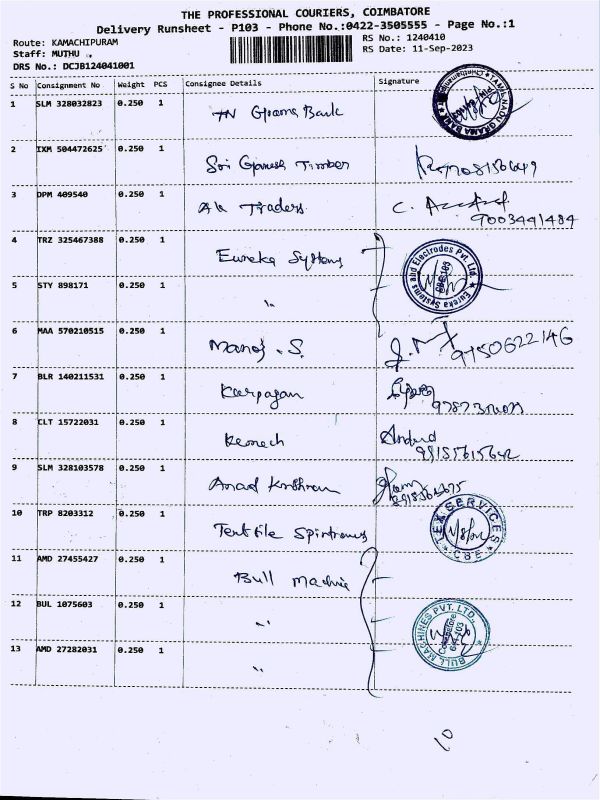 THE PROFESSIONAL COURIERS, COIMBATORE
Delivery Runsheet - P103 - Phone No.:0422-3505555 - Page No.:1
Route: KAMACHIPURAM RS No.: 1240410
Staff: MUTHU RS Date: 11-Sep-2023
DRS No.: DCJB124041001
S No Consignment No Weight PCS Consignee Details Signature
1 SLM 328032823 0.250 1 TN Grama Bank
2 IXM 504472625 0.250 1 Sri Ganesh Timber
3 DPM 409540 0.250 1 AK Traders C.
9003441484
4 TRZ 325467388 0.250 1 Eureka Systems Eureka Systems and Electrodes Pvt. Ltd.
5 STY 898171 0.250 1 "
6 MAA 570210515 0.250 1 Manoj . S. 9150622146
7 BLR 140211531 0.250 1 Karpagan
8 CLT 15722031 0.250 1
9 SLM 328103578 0.250 1
10 TRP 8203312 0.250 1 Textile TEX SERVICES CBE
11 AMD 27455427 0.250 1 Bull Machine
12 BUL 1075603 0.250 1 " BULL MACHINES PVT. LTD.,
13 AMD 27282031 0.250 1 "
10